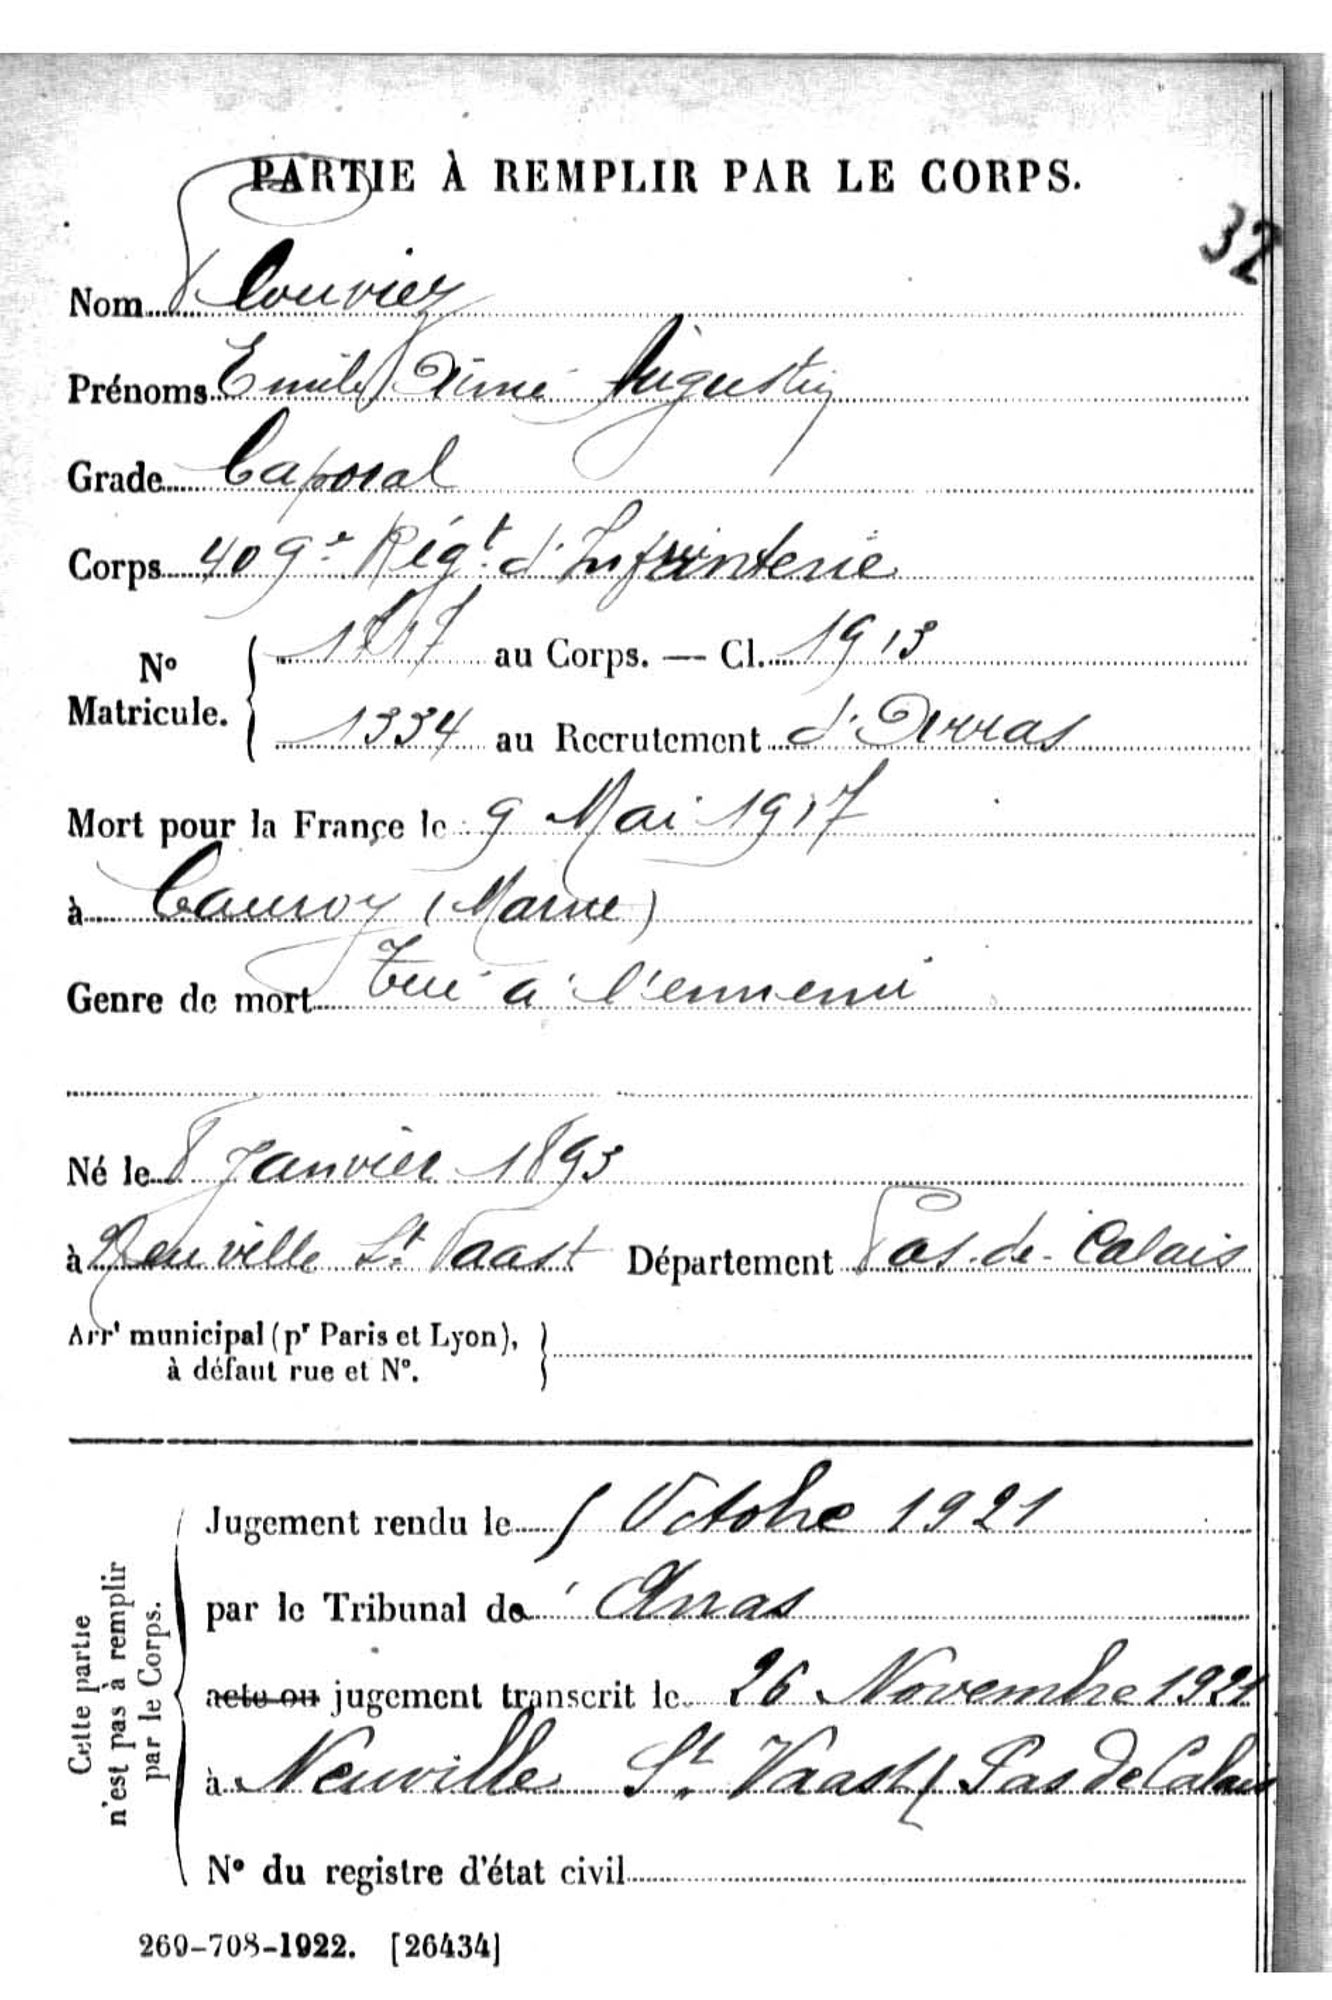 PARTIE À REMPLIR PAR LE CORPS.
32
Nom Couviez
Prénoms Emile Aimé Augustin
Grade Caporal
Corps 409e Régt d'Infanterie
No Matricule. 1717 au Corps. — Cl. 1913
1334 au Recrutement d'Arras
Mort pour la France le 9 Mai 1917
à Cauroy (Marne)
Genre de mort Tué à l'ennemi
Né le 8 Janvier 1893
à Neuville St Vaast Département Pas-de-Calais
Arrt municipal (pr Paris et Lyon),
à défaut rue et No.
Cette partie
n'est pas à remplir
par le Corps.
Jugement rendu le 5 Octobre 1921
par le Tribunal de Arras
acte ou jugement transcrit le 26 Novembre 1921
à Neuville St Vaast (Pas de Calais
No du registre d'état civil
269-708-1922. [26434]